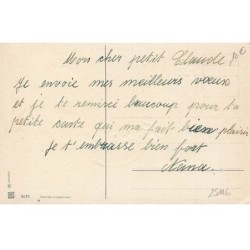 Mon cher petit Claude
Je envoie mes meilleurs vœux
et je te remerci beaucoup pour ta
petite carte qui ma fait bien plaisir
je t'embrasse bien fort
Nana